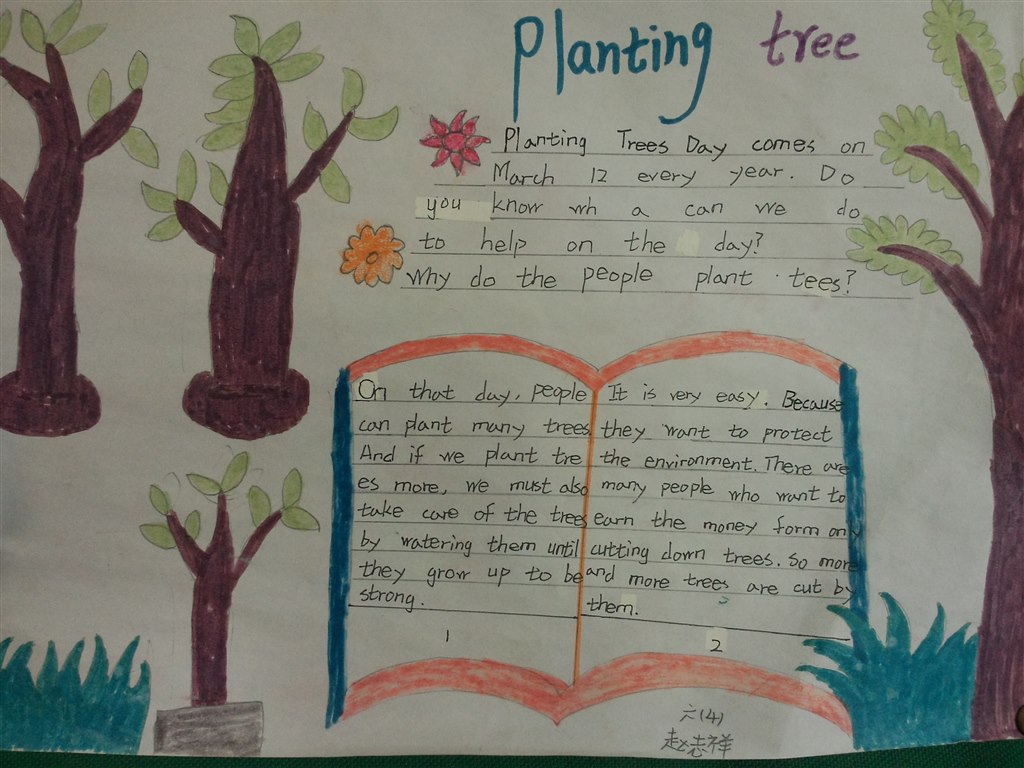 Planting tree
Planting Trees Day comes on
March 12 every year. Do
you know wh a can we do
to help on the day?
Why do the people plant tees?
On that day, people
can plant many trees
And if we plant tre
es more, we must also
take care of the trees
by watering them until
they grow up to be
strong.
1
It is very easy. Because
they want to protect
the environment. There are
many people who want to
earn the money form only
cutting down trees. So more
and more trees are cut by
them.
2
六(4)
赵志祥